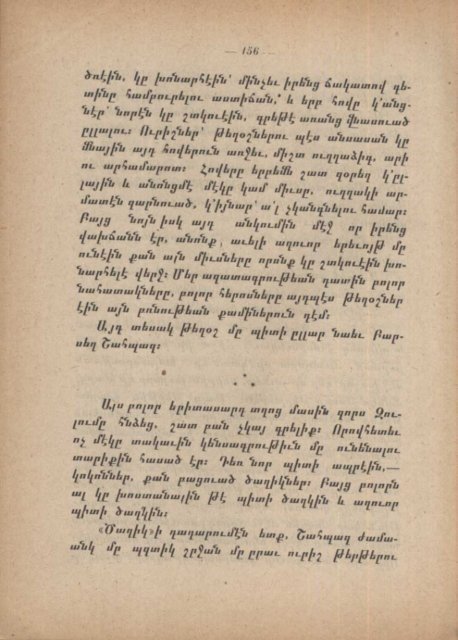 — 156 —
ծռէին, կը խոնարհէին՝ մինչեւ իրենց ճակատով գե-
տինը համբուրելու աստիճան,՝ և երբ հովը կ՚անց-
նէր՝ նորէն կը շտկուէին, գրեթէ առանց վնասուած
ըլլալու։ Ուրիշներ՝ թեղօշներու պէս անսասան կը
մնային այդ հովերուն առջեւ, միշտ ուղղաձիգ, արի
ու արհամարոտ։ Հովերը երբեմն շատ զօրեղ կ՚ըլ-
լային և անոնցմէ մէկը կամ միւսը, ուղղակի ար-
մատէն զարնուած, կ՚իյնար՝ ա՛լ չկանգնելու համար։
Բայց նոյն իսկ այդ անկումին մէջ որ իրենց
վախճանն էր, անոնք, աւելի աղուոր երեւոյթ մը
ունէին քան այն միւսները որոնք կը շտկուէին խո-
նարհելէ վերջ։ Մեր ազատագրութեան դատին բոլոր
նահատակները, բոլոր հերոսները այդպէս թեղօշներ
էին այն բռնութեան քամիներուն դէմ։
Այդ տեսակ թեղօշ մը պիտի ըլլար նաեւ Բար-
սեղ Շահպազ։
* * *
Այս բոլոր երիտասարդ տղոց մասին զորս Զու-
լումը հնձեց, շատ բան չկայ գրելիք։ Որովհետեւ
ոչ մէկը տակաւին կենսագրութիւն մը ունենալու
տարիքին հասած էր։ Դեռ նոր պիտի ապրէին,—
կոկոններ, քան բացուած ծաղիկներ։ Բայց բոլորն
ալ կը խոստանային թէ պիտի ծաղկին և աղուոր
պիտի ծաղկին։
«Ծաղիկ»ի դադարումէն ետք, Շահպազ ժամա-
անկ մը պզտիկ շրջան մը ըրաւ ուրիշ թերթերու